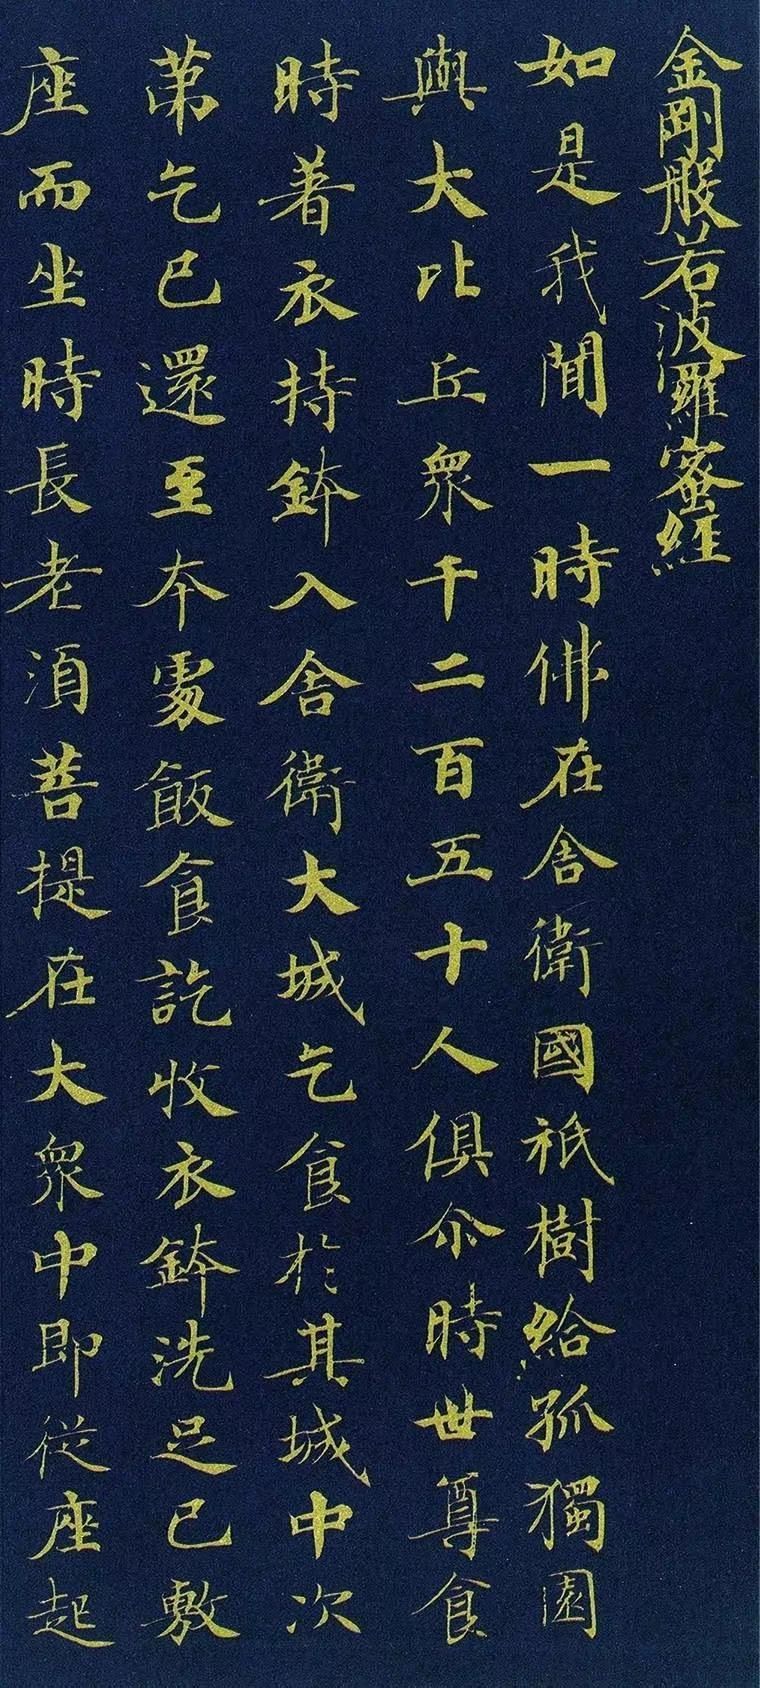 金剛般若波羅蜜經
如是我聞一時佛在舍衛國祇樹給孤獨園
與大比丘衆千二百五十人俱尒時世尊食
時著衣持鉢入舍衛大城乞食於其城中次
第乞已還至本處飯食訖收衣鉢洗足已敷
座而坐時長老須菩提在大衆中即從座起